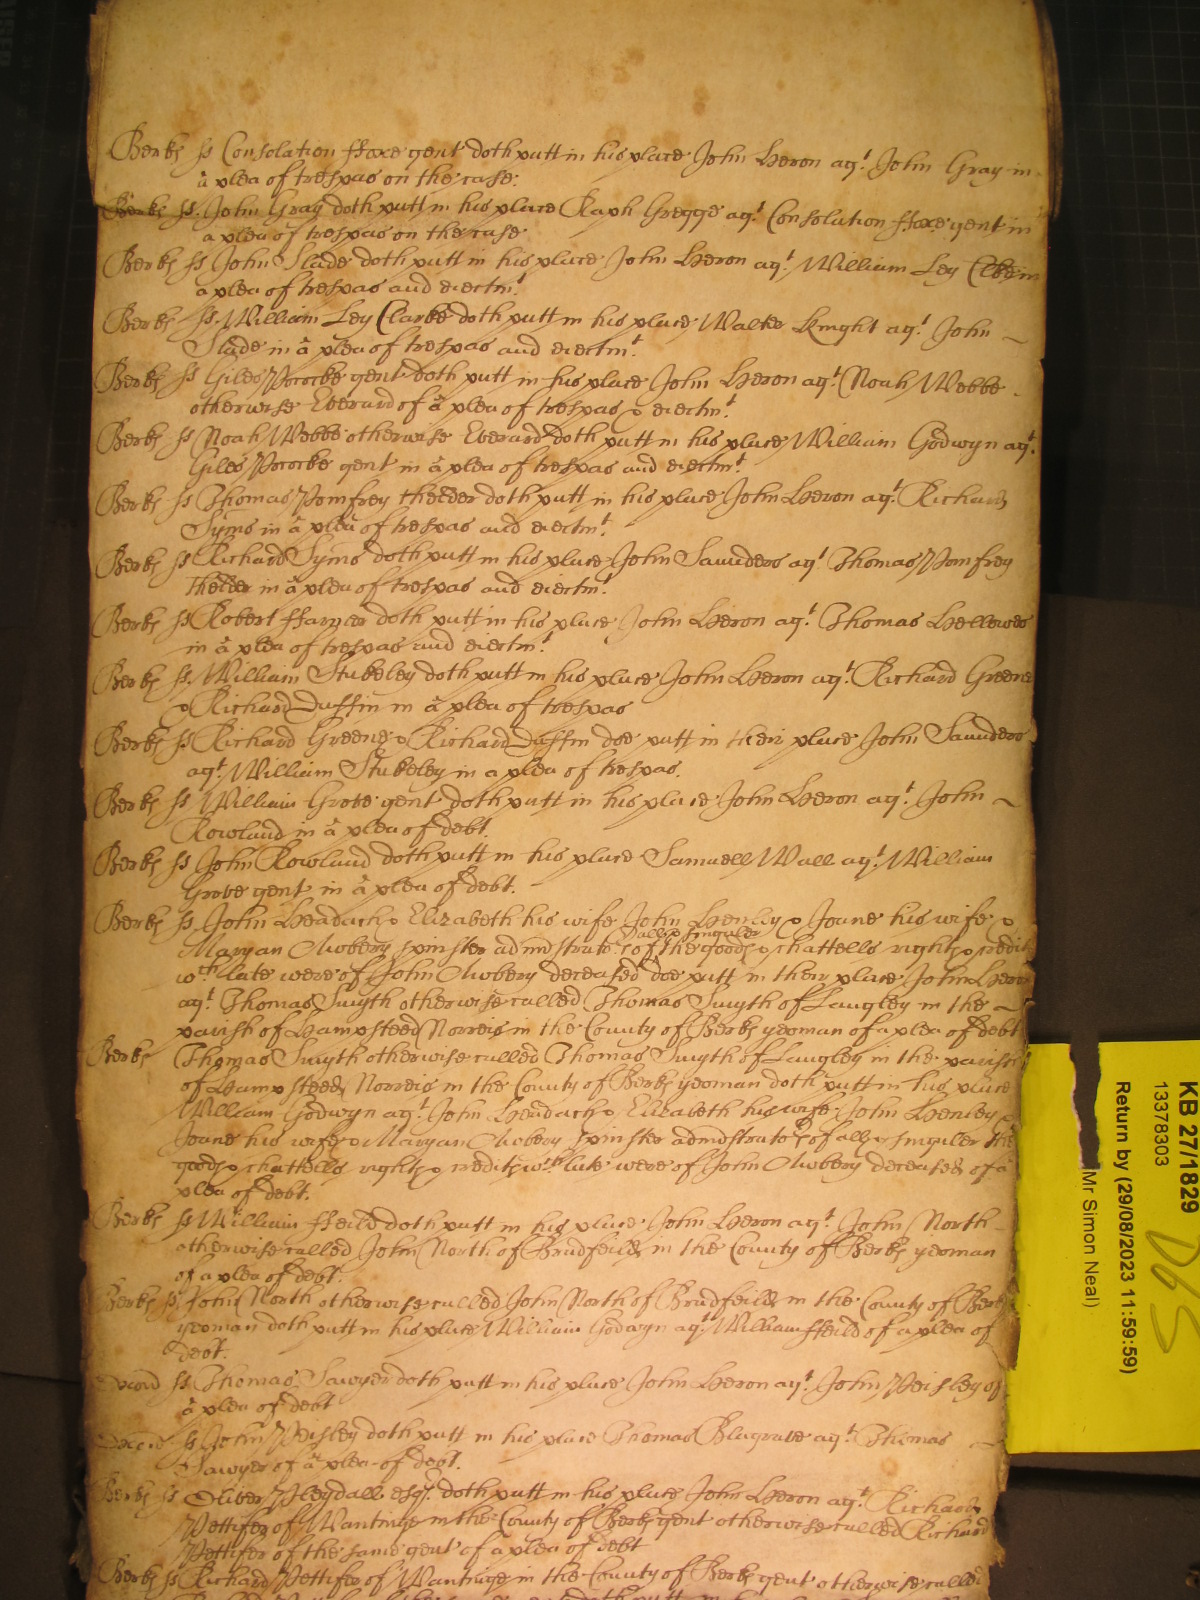 Berks ss Consolation ffoxe gent doth putt in his place John Heron agt John Gray in
a plea of trespas on the case.
Berks ss. John Gray doth putt in his place Raph Gregge agt Consolation ffoxe gent in
a plea of trespas on the case
Berks ss John Slade doth putt in his place John Heron agt William Ley Clke in
a plea of trespas and eiectmt
Berks ss. William Ley Clarke doth putt in his place Walter Knight agt John
Slade in a plea of trespas and eiectmt
Berks ss Giles Pococke gent doth putt in his place John Heron agt Noah Webbe
otherwise Everard of a plea of trespas & eiectmt
Berks ss Noah Webbe otherwise Everard doth putt in his place William Godwyn agt
Giles Pococke gent in a plea of trespas and eiectmt
Berks ss Thomas Pomfrey thelder doth putt in his place John Heron agt Richard
Syms in a plea of trespas and eiectmt
Berks ss Richard Syms doth putt in his place John Saunders agt Thomas Pomfrey
thelder in a plea of trespas and eiectmt
Berks ss Robert ffaryer doth putt in his place John Heron agt Thomas Hellowes
in a plea of trespas and eiectmt
Berks ss. William Stukeley doth putt in his place John Heron agt Richard Greene
& Richard Duffin in a plea of trespas
Berks ss Richard Greene & Richard Duffin doe putt in their place John Saunders
agt William Stukeley in a plea of trespas.
Berks ss William Grove gent doth putt in his place John Heron agt John
Rowland in a plea of debt.
Berks ss John Rowland doth putt in his place Samuell Wall agt William
Grove gent in a plea of debt.
Berks ss John Headach & Elizabeth his wife John Henley & Joane his wife &
Maryan Owbery spinster admstrators of all & singuler the goods & chattells rights & credits
wch late were of John Owbery deceased doe putt in their place John Heron
agt Thomas Smyth otherwise called Thomas Smyth of Langley in the
parish of Hampsteed Norreis in the County of Berks yeoman of a plea of debt
Berks Thomas Smyth otherwise called Thomas Smyth of Langley in the parish
of Hampsteed Norreis in the County of Berks yeoman doth putt in his place
William Godwyn agt John Headach & Elizabeth his wife John Henley &
Joane his wife & Maryan Owbery spinster admstrators of all & singuler the
goods & chattells rights & credits wch late were of John Owbery deceased of a
plea of debt.
Berks ss William ffeild doth putt in his place John Heron agt John North
otherwise called John North of Bradfeild in the County of Berks yeoman
of a plea of debt.
Berks ss John North otherwise called John North of Bradfeild in the County of Berks
yeoman doth putt in his place William Godwyn agt William ffeild of a plea of
debt.
ss Thomas Sawyer doth putt in his place John Heron agt John Peisley of
a plea of debt
ss John Peisley doth putt in his place Thomas Blagrave agt Thomas
Sawyer of a plea of debt.
Berks ss Oliver Pleydall esqr. doth putt in his place John Heron agt Richard
Pettifer of Wantinge in the County of Berks gent otherwise called Richard
Pettifer of the same gent of a plea of debt
Berks ss Richard Pettifer of Wantinge in the County of Berks gent otherwise called
KB 27/1829
13378303
Return by (29/08/2023 11:59:59)
Mr Simon Neal)